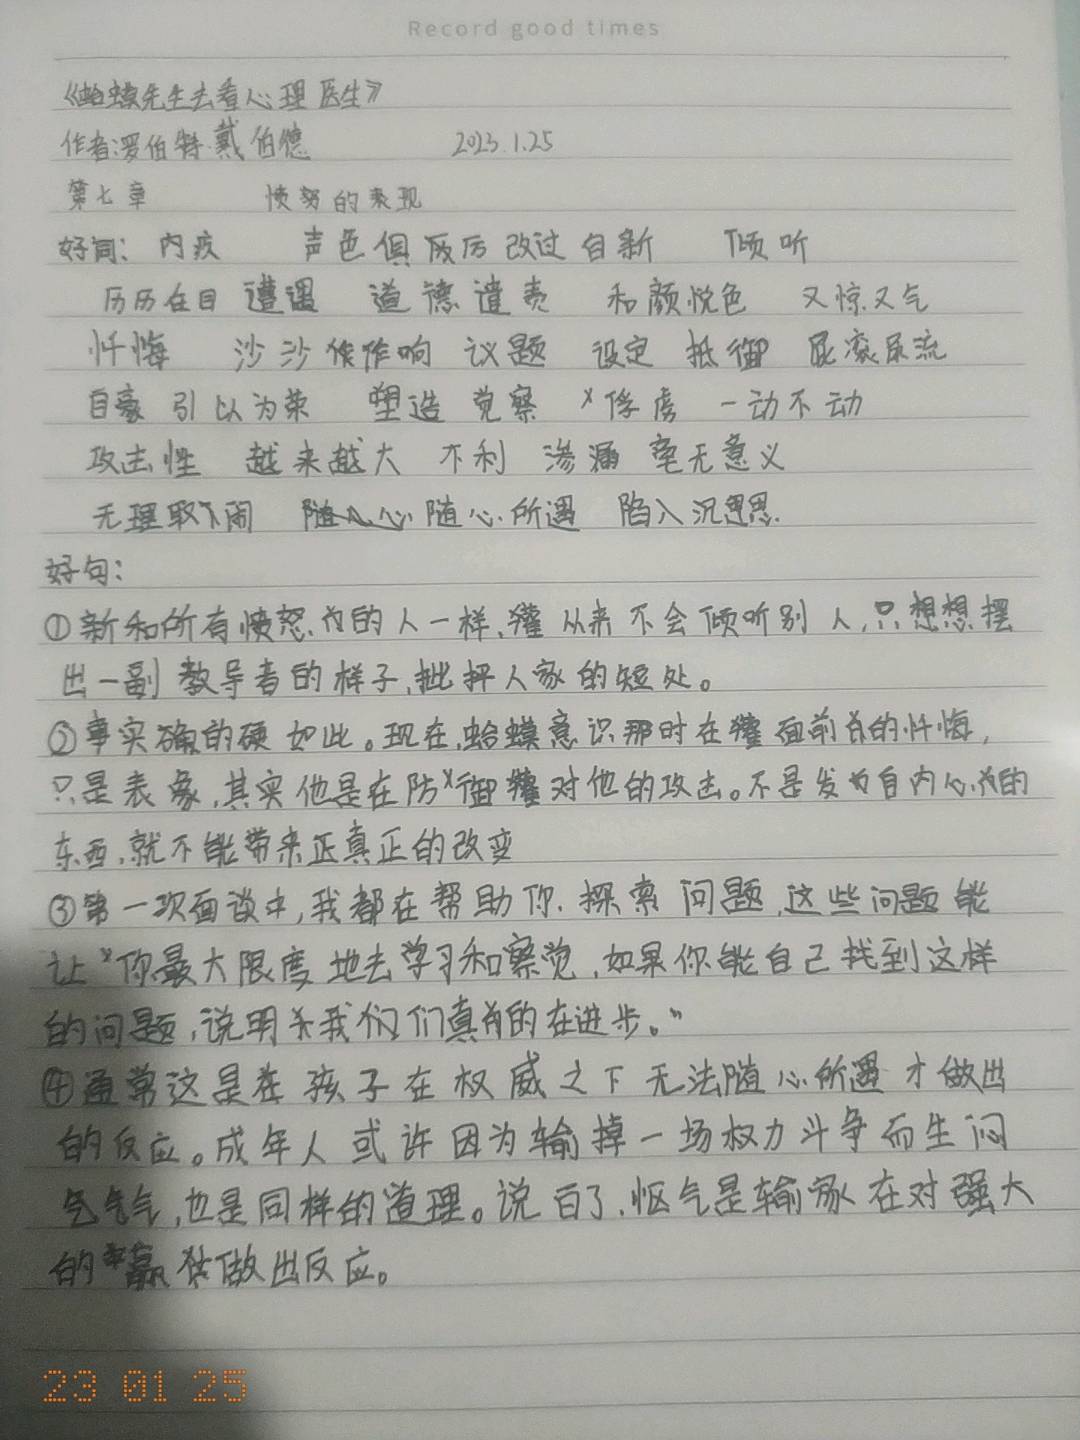 Record good times
《蛤蟆先生去看心理医生》
作者:罗伯特·戴伯德 2023.1.25
第七章 愤努的表现
好词: 内疚 声色俱厉 改过自新 倾听
历历在目 遭遇 道德谴责 和颜悦色 又惊又气
忏悔 沙沙作响 议题 设定 抵御 屁滚尿流
自豪 引以为荣 塑造 觉察 俘虏 一动不动
攻击性 越来越大 不利 渗漏 毫无意义
无理取闹 随心所遇 陷入沉思
好句:
①新和所有愤怒的人一样,獾从来不会倾听别人,只想想摆
出一副教导者的样子,批抨人家的短处。
②事实确的硬如此。现在,蛤蟆意识那时在獾面前的忏悔,
只是表象,其实他是在防御獾对他的攻击。不是发自内心的
东西,就不能带来正真正的改变
③第一次面谈中,我都在帮助你.探索问题,这些问题能
让"你最大限度地去学习和察觉,如果你能自己找到这样
的问题,说明我们们真的在进步。"
④通常这是在孩子在权威之下无法随心所遇才做出
的反应。成年人或许因为输掉一场权力斗争而生闷
气,也是同样的道理。说白了,怄气是输家在对强大
的赢做出反应。
23 01 25